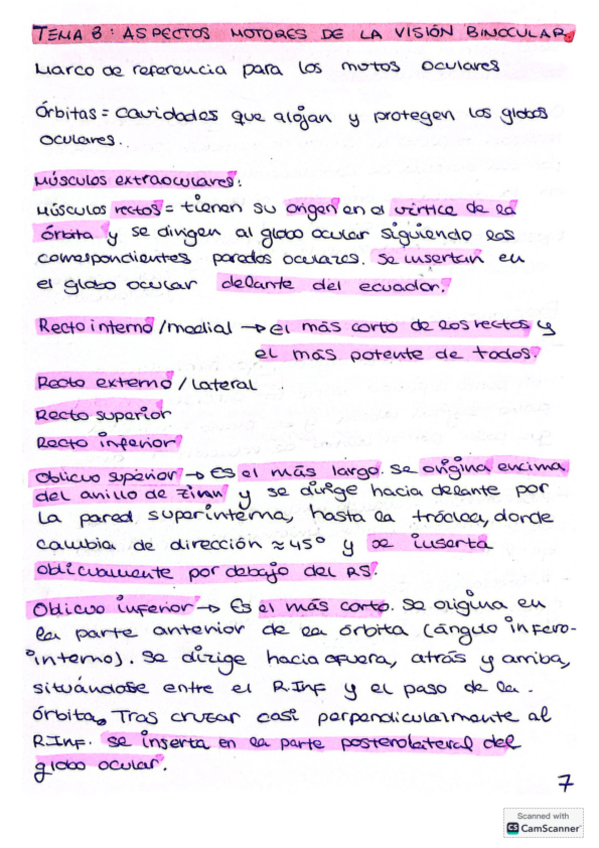 TEMA 8: ASPECTOS MOTORES DE LA VISIÓN BINOCULAR
Marco de referencia para los motos oculares
Órbitas = cavidades que alojan y protegen los globos
oculares.
Músculos extraoculares:
Músculos rectos = tienen su origen en el vértice de la
órbita y se dirigen al globo ocular siguiendo las
correspondientes paredes oculares. Se insertan en
el globo ocular delante del ecuador.
Recto interno/medial → el más corto de los rectos y
el más potente de todos.
Recto externo / lateral
Recto superior
Recto inferior
Oblicuo superior → Es el más largo. Se origina encima
del anillo de Zinn y se dirige hacia delante por
la pared superinterna, hasta la tróclea, donde
cambia de dirección ≈ 45º y se inserta
oblicuamente por debajo del RS.
Oblicuo inferior → Es el más corto. Se origina en
la parte anterior de la órbita (ángulo infero-
interno). Se dirige hacia afuera, atrás y arriba,
situándose entre el R.Inf y el paso de la
órbita. Tras cruzar casi perpendicularmente al
R.Inf. se inserta en la parte posterolateral del
globo ocular.
7
Scanned with
CS CamScanner